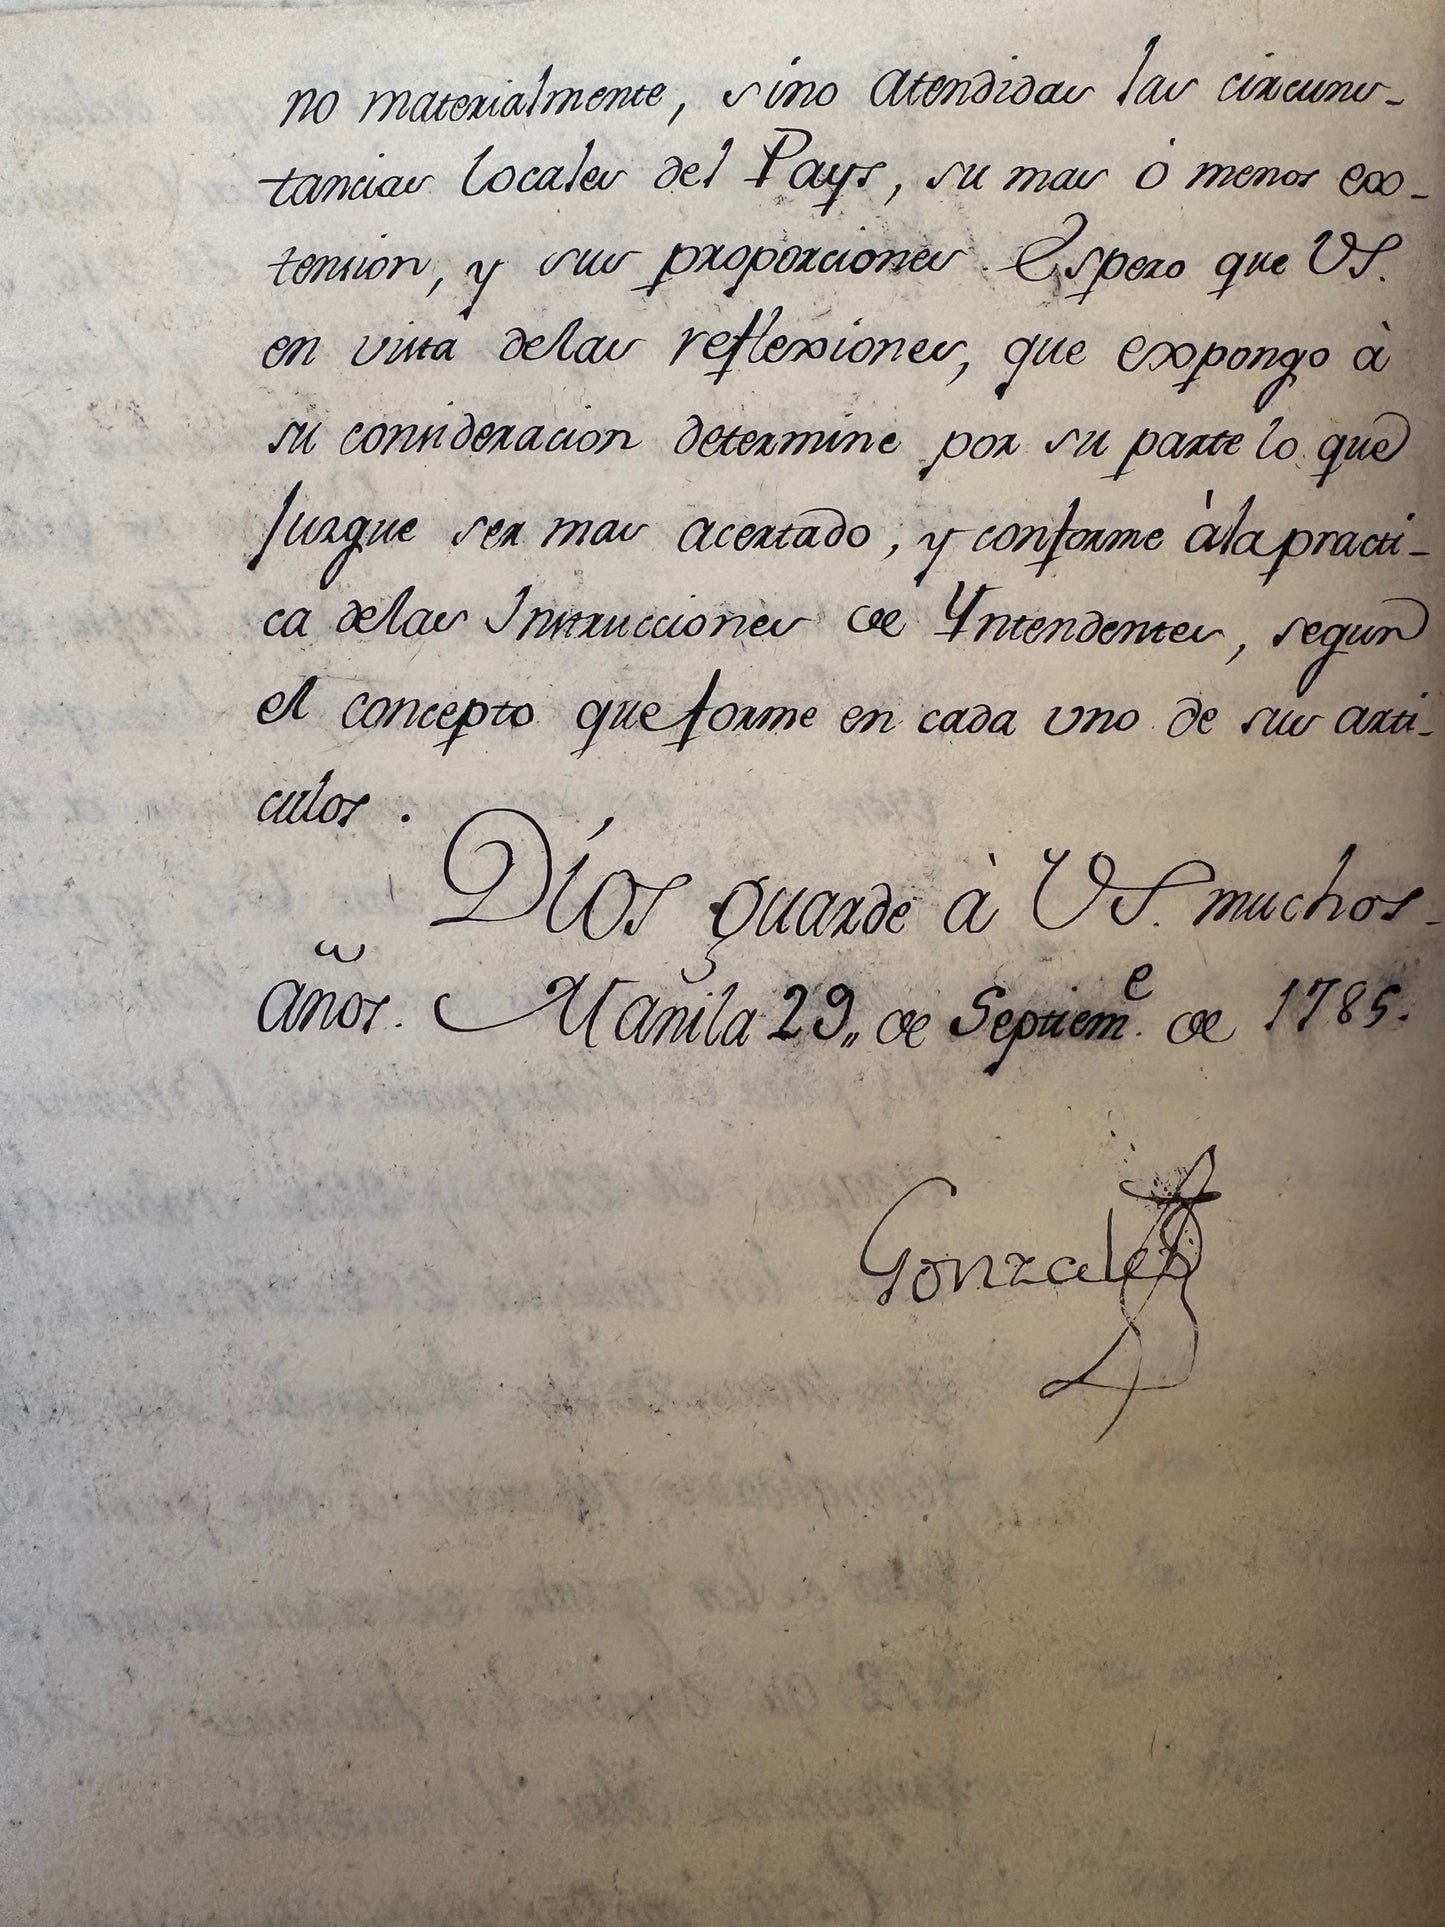 no materialmente, sino atendidas las circuns-
tancias locales del Pays, su mas ó menos ex-
tension, y sus proporciones. Espero que VS.
en vista delas reflexiones, que expongo à
su consideracion determine por su parte lo que
Juzgue ser mas acertado, y conforme àla practi-
ca delas Instrucciones de Yntendentes, segun
el concepto que forme en cada uno de sus arti-
culos.
Díos guarde à VS. muchos-
años. Manila 29,, de Septiem.e de 1785.
Gonzalez